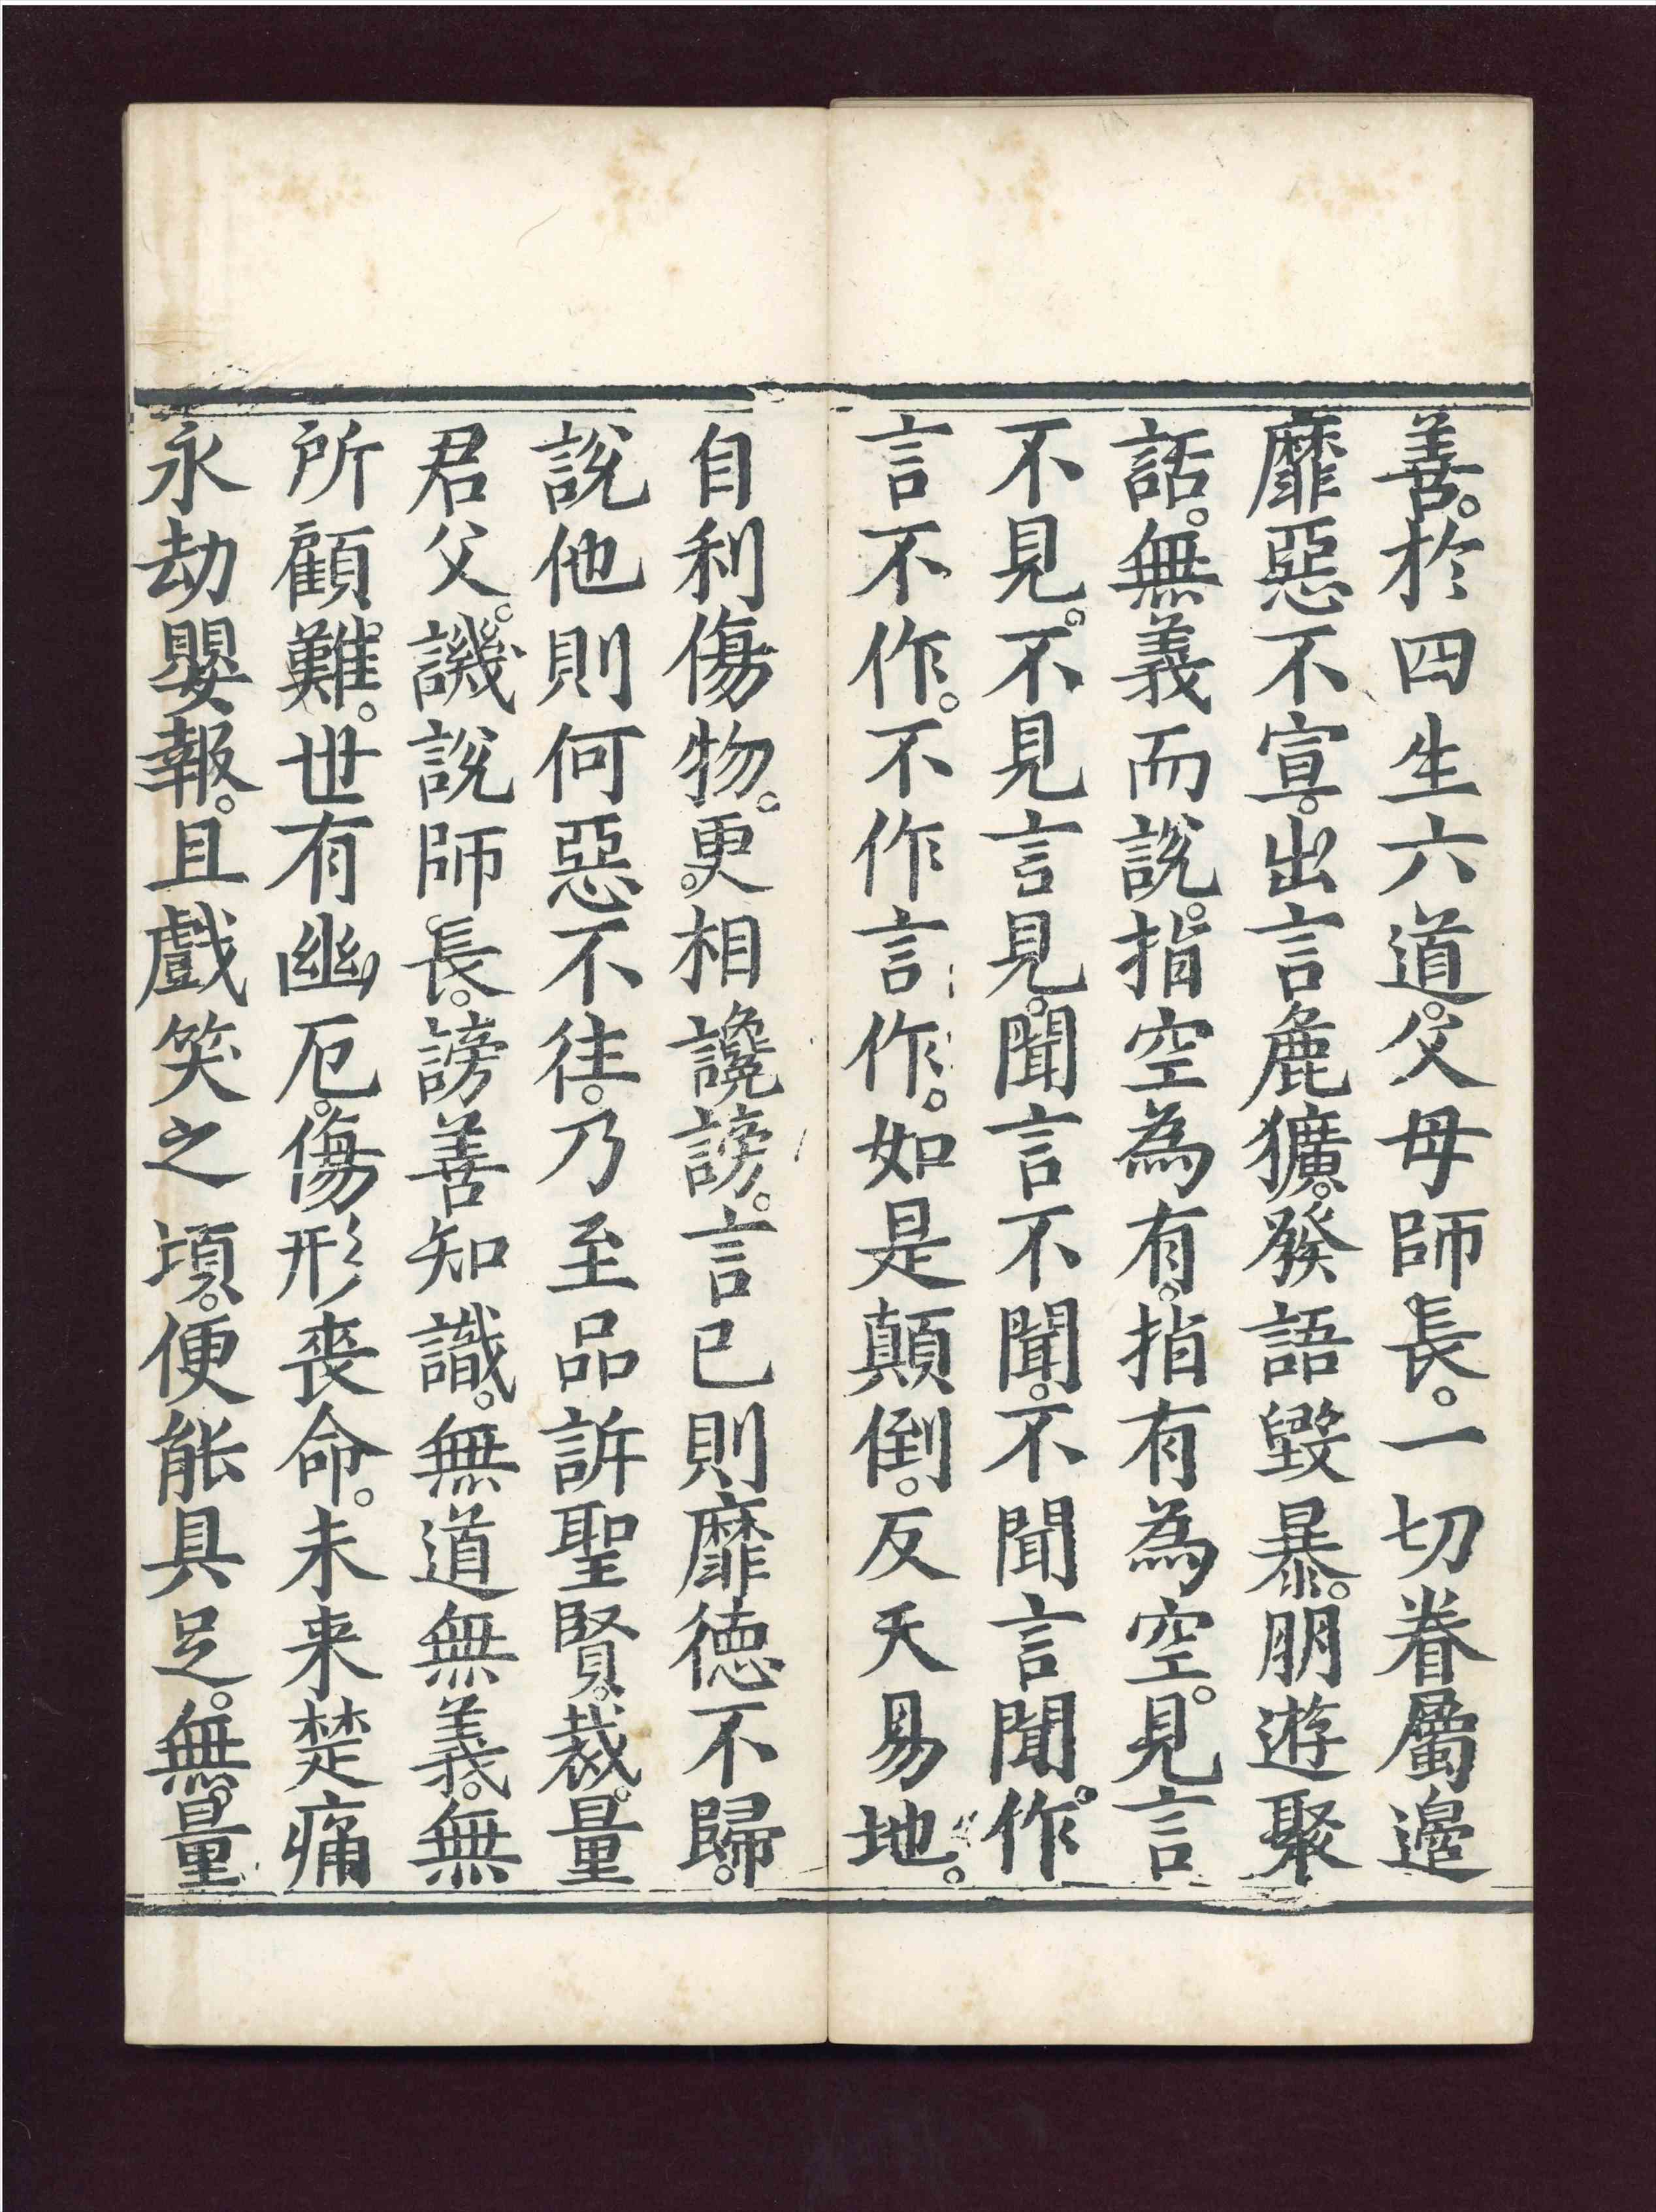 善。於四生六道。父母師長。一切眷屬邊
靡惡不宣。出言麁獷。發語毀暴。朋遊聚
話。無義而說。指空為有。指有為空。見言
不見。不見言見。聞言不聞。不聞言聞。作
言不作。不作言作。如是顛倒。反天易地。
自利傷物。更相讒謗。言已則靡德不歸。
說他則何惡不往。乃至品訴聖賢。裁量
君父。譏說師長。謗善知識。無道無義。無
所顧難。世有幽厄。傷形喪命。未来楚痛
永劫嬰報。且戲笑之頃。便能具足。無量